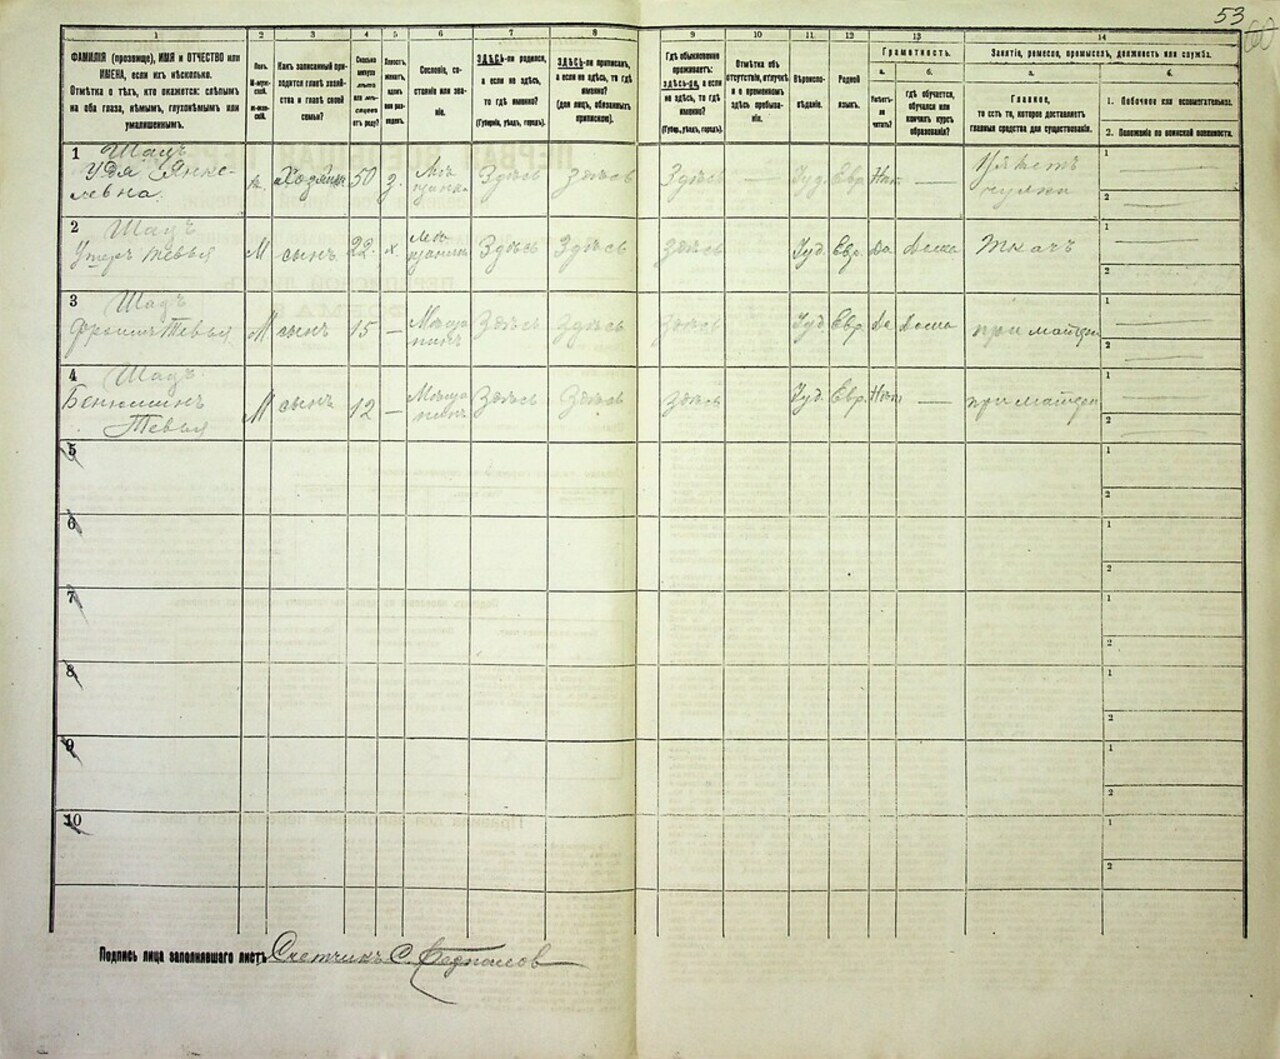 53
60
1
2
3
4
5
6
7
8
9
10
11
12
13
14
ФАМИЛІЯ (прозвище), ИМЯ и ОТЧЕСТВО или
ИМЕНА, если ихъ нѣсколько.
Отмѣтка о тѣхъ, кто окажется: слѣпымъ
на оба глаза, нѣмымъ, глухонѣмымъ или
умалишеннымъ.
Полъ.
Какъ записанный при-
ходится главѣ хозяй-
ства и главѣ своей
семьи?
Сколько
минуло
лѣтъ
или мѣ-
сяцевъ
отъ роду?
Сословіе, со-
стояніе или зва-
ніе.
ЗДѢСЬ-ли родился,
а если не здѣсь,
то гдѣ именно?
(Губернія, уѣздъ, городъ).
ЗДѢСЬ-ли приписанъ,
а если не здѣсь, то гдѣ
именно?
(для лицъ, обязанныхъ
припискою).
Гдѣ обыкновенно
проживаетъ:
здѣсь-ли, а если
не здѣсь, то гдѣ
именно?
(Губер., уѣздъ, городъ).
Отмѣтка объ
отсутствіи, отлучкѣ
и о временномъ
здѣсь пребыва-
ніи.
Вѣроиспо-
вѣданіе.
Родной
языкъ.
Грамотность.
а.
Умѣетъ-
ли
читать?
б.
гдѣ обучается,
обучался или
кончилъ курсъ
образованія?
Занятіе, ремесло, промыселъ, должность или служба.
а.
Главное,
то есть то, которое доставляетъ
главныя средства для существованія.
б.
1. Побочное или вспомогательное.
2. Положеніе по воинской повинности.
1
Шацъ
Удя Янке-
левна
ж. Хозяйка 50 Здѣсь Здѣсь Здѣсь — Іуд. Евр. Нѣт. —
чулки
1
2
2
Шацъ
Тевья
М сынъ 22 х. Здѣсь Здѣсь Здѣсь Іуд. Евр. да Дома Ткачъ
1
2
3
Шацъ
Тевья
М сынъ 15 — Здѣсь Здѣсь Здѣсь Іуд. Евр. да Дома при матери
1
2
4
Шацъ
Беньминъ
Тевья
М сынъ 12 — Здѣсь Здѣсь Здѣсь Іуд. Евр. Нѣт. — при матери
1
2
5
1
2
6
1
2
7
1
2
8
1
2
9
1
2
10
1
2
Подпись лица заполнявшаго листъ Счетчикъ С.